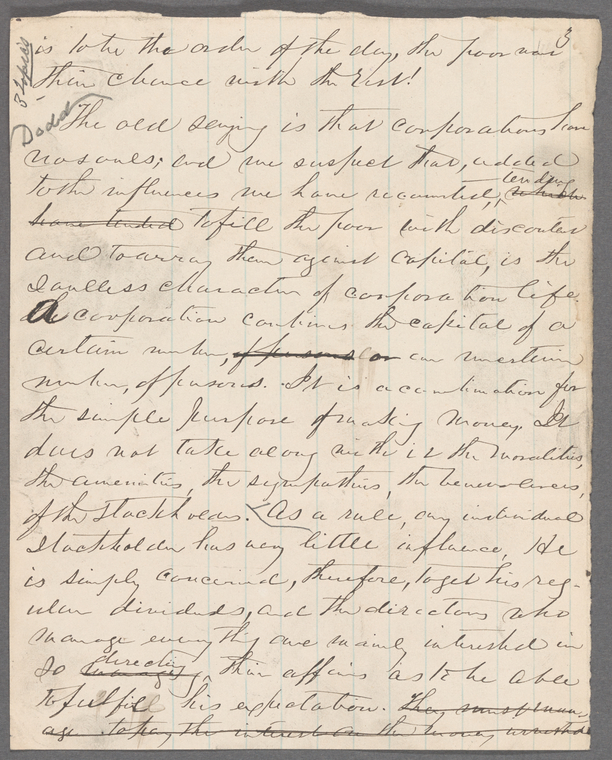 3
is to be the order of the day, the poor man
their chance with the rest!
Dodd
The old saying is that corporations have
no souls; and we suspect that, added
to the influences we have recounted, tending which
have tended to fill the poor with discontent
and to array them against capital, is the
soulless character of corporation life.
A corporation combines the capital of a
certain number, of persons or an uncertain
number, of persons. It is a combination for
the simple purpose of making money. It
does not take along with it the moralities,
the amenities, the sympathies, the benevolences,
of the stockholders. As a rule, any individual
stockholder has very little influence. He
is simply concerned, therefore, to get his reg-
ular dividends, and the directors who
manage everything are mainly interested in
so directing their affairs as to be able
to fulfill his expectation. They must man-
age to pay the interest on the money invested